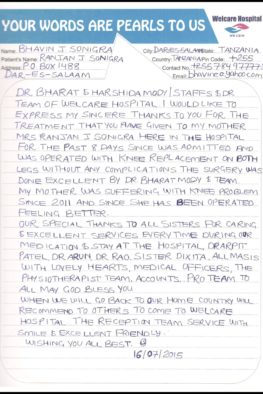 YOUR WORDS ARE PEARLS TO US
Welcare Hospital
Name: BHAVIN J SONIGRA City: DAR-ES-SALAAM State: TANZANIA
Patient's Name: RANJAN J SONIGRA Country: TANZANIA Pin Code: +255
Address: P.O BOX 1488 Contact No.:
DAR-ES-SALAAM Email:
DR. BHARAT & HARSHIDA MODY / STAFFS & DR
TEAM OF WELCARE HOSPITAL I WOULD LIKE TO
EXPRESS MY SINCERE THANKS TO YOU FOR THE
TREATMENT THAT YOU HAVE GIVEN TO MY MOTHER
MRS RANJAN J SONIGRA HERE IN THE HOSPITAL
FOR THE PAST 8 DAYS SINCE WAS ADMITTED AND
WAS OPERATED WITH KNEE REPLACEMENT ON BOTH
LEGS WITHOUT ANY COMPLICATIONS THE SURGERY WAS
DONE EXCELLENT BY DR BHARAT MODY & TEAM
MY MOTHER WAS SUFFERING WITH KNEE PROBLEM
SINCE 2011 AND SINCE SHE HAS BEEN OPERATED
FEELING BETTER.
OUR SPECIAL THANKS TO ALL SISTERS FOR CARING
& EXCELLENT SERVICES EVERY TIME DURING OUR
MEDICATION & STAY AT THE HOSPITAL, DR ARPIT
PATEL, DR ARUN, DR RAO, SISTER DIXITA, ALL MASIS
WITH LOVELY HEARTS, MEDICAL OFFICERS, THE
PHYSIOTHERAPIST TEAM, ACCOUNTS, PRO TEAM TO
ALL MAY GOD BLESS YOU
WHEN WE WILL GO BACK TO OUR HOME COUNTRY WILL
RECOMMEND TO OTHERS TO COME TO WELCARE
HOSPITAL THE RECEPTION TEAM SERVICE WITH
SMILE & EXCELLENT FRIENDLY.
WISHING YOU ALL BEST.
16/07/2015